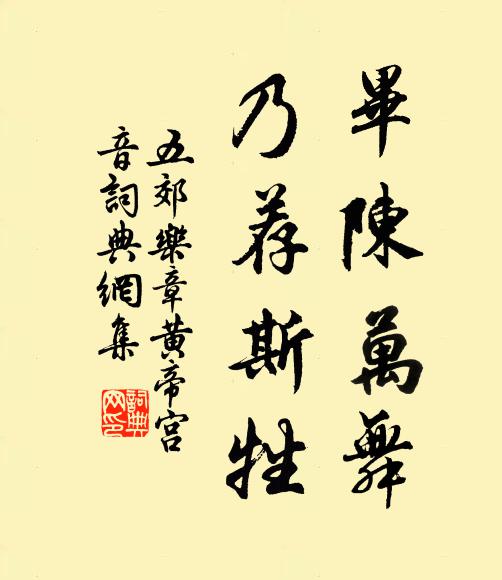 畢陳萬舞
乃荐斯牲
五郊樂章黃帝宮
音詞典網集
詞典
网印